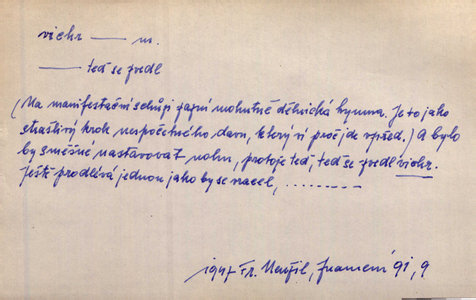 vichr —— m.
—— teď se zvedl
(Na manifestační schůzi zazní mohutně dělnická hymna. Je to jako
strašlivý krok nespočetného davu, který ví proč jde vpřed.) A bylo
by směšné nastavovat nohu, protože teď, teď se zvedl vichr.
Ještě prodlévá jednou jako by se vracel, .........
1947 Fr. Neužil, znamení 91, 9